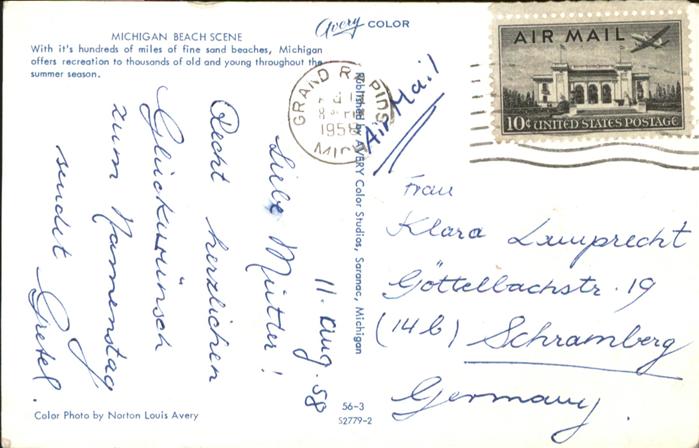 MICHIGAN BEACH SCENE
With it's hundreds of miles of fine sand beaches, Michigan
offers recreation to thousands of old and young throughout the
summer season.
Avery COLOR
GRAND RAPIDS
1958
MICH
AIR MAIL
10¢ UNITED STATES POSTAGE
Air Mail
11. Aug. 58
Liebe Mutter!
Recht herzlichen
Glückwünsch
zum Namenstag
sendet Gretel.
Published by AVERY Color Studios, Saranac, Michigan
Frau
Klara Lamprecht
Göttelbachstr. 19
(14b) Schramberg
Germany.
56-3
S2779-2
Color Photo by Norton Louis Avery